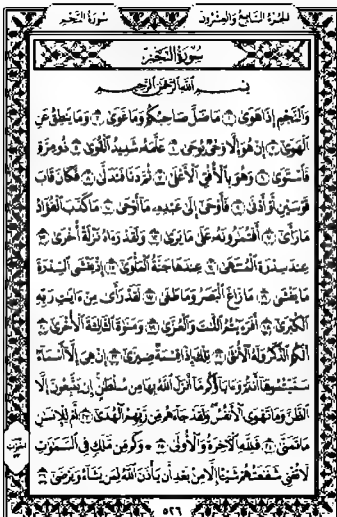 الجزء السابع والعشرون سورة النجم
سورة النجم
بسم الله الرحمن الرحيم
والنجم إذا هوى ١ ما ضل صاحبكم وما غوى ٢ وما ينطق عن
الهوى ٣ إن هو إلا وحي يوحى ٤ علمه شديد القوى ٥ ذو مرة
فاستوى ٦ وهو بالأفق الأعلى ٧ ثم دنا فتدلى ٨ فكان قاب
قوسين أو أدنى ٩ فأوحى إلى عبده ما أوحى ١٠ ما كذب الفؤاد
ما رأى ١١ أفتمرونه على ما يرى ١٢ ولقد رءاه نزلة أخرى ١٣
عند سدرة المنتهى ١٤ عندها جنة المأوى ١٥ إذ يغشى السدرة
ما يغشى ١٦ ما زاغ البصر وما طغى ١٧ لقد رأى من ءايت ربه
الكبرى ١٨ أفرءيتم اللت والعزى ١٩ ومنوة الثالثة الأخرى ٢٠
ألكم الذكر وله الأنثى ٢١ تلك إذا قسمة ضيزى ٢٢ إن هي إلا أسماء
سميتموها أنتم وءاباؤكم ما أنزل الله بها من سلطن إن يتبعون إلا
الظن وما تهوى الأنفس ولقد جاءهم من ربهم الهدى ٢٣ أم للإنسن
ما تمنى ٢٤ فلله الآخرة والأولى ٢٥ وكم من ملك في السموت
لا تغني شفعتهم شيئا إلا من بعد أن يأذن الله لمن يشاء ويرضى ٢٦
٥٢٦